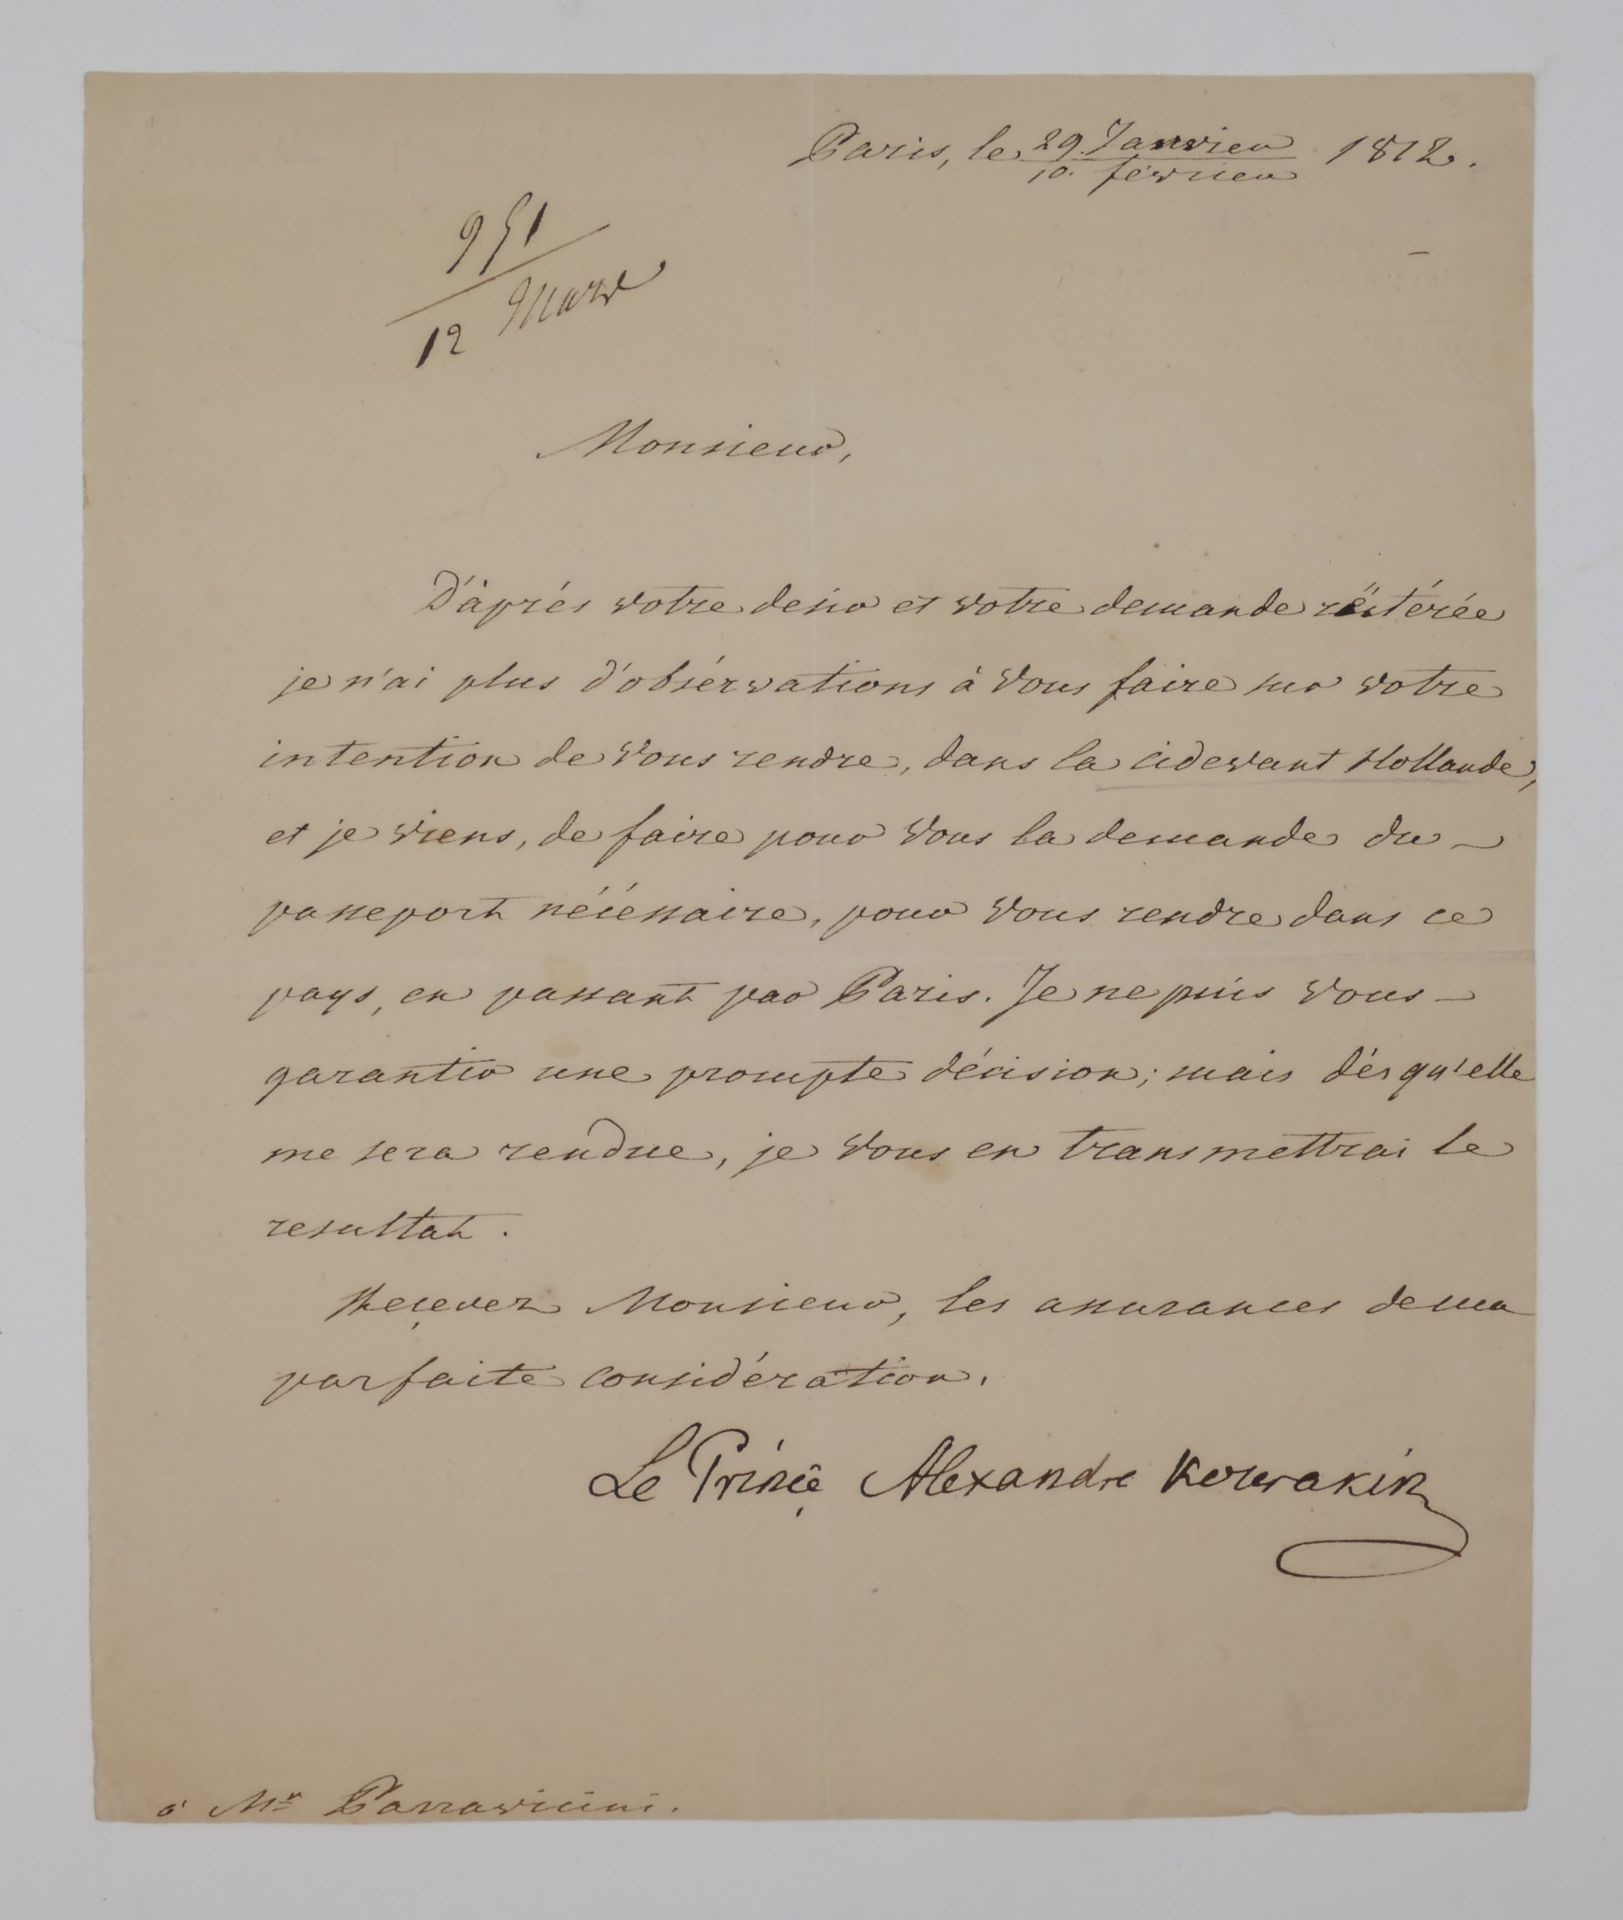 Paris, le 29. Janvier / 10. février 1812.
951
12 Mars
Monsieur,
D'àprés votre desir et votre demande réitérée
je n'ai plus d'obsérvations à vous faire sur votre
intention de vous rendre, dans la cidevant Hollande,
et je viens, de faire pour vous la demande du
passeport nécéssaire, pour vous rendre dans ce
pays, en passant par Paris. Je ne puis vous
garantir une prompte décision; mais dés qu'elle
me sera rendue, je vous en transmettrai le
resultat.
Reçevez Monsieur, les assurances de ma
parfaite considération.
Le Prince Alexandre Kourakin
à Mr Parravicini.